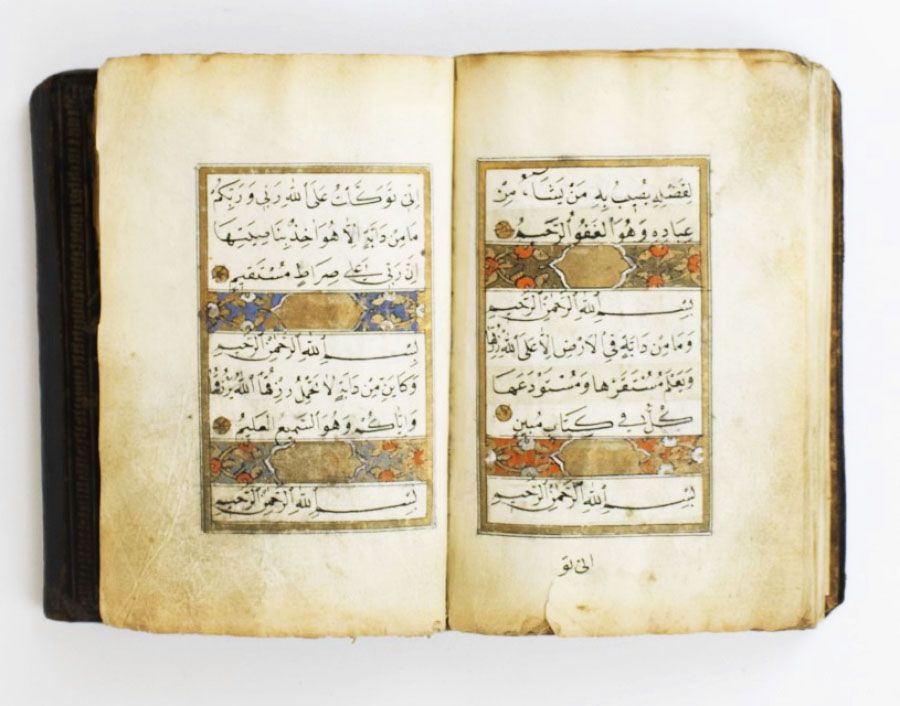 لِفَضْلِهِ يُصِيبُ بِهِ مَنْ يَشَاءُ مِنْ
عِبَادِهِ وَهُوَ الْغَفُورُ الرَّحِيمُ
بِسْمِ اللهِ الرَّحْمٰنِ الرَّحِيمِ
وَمَا مِنْ دَابَّةٍ فِي الْاَرْضِ اِلَّا عَلَى اللهِ رِزْقُهَا
وَيَعْلَمُ مُسْتَقَرَّهَا وَمُسْتَوْدَعَهَا
كُلٌّ فِي كِتَابٍ مُبِينٍ
بِسْمِ اللهِ الرَّحْمٰنِ الرَّحِيمِ
انى تو
اِنِّى تَوَكَّلْتُ عَلَى اللهِ رَبِّى وَرَبِّكُمْ
مَا مِنْ دَابَّةٍ اِلَّا هُوَ اٰخِذٌ بِنَاصِيَتِهَا
اِنَّ رَبِّى عَلٰى صِرَاطٍ مُسْتَقِيمٍ
بِسْمِ اللهِ الرَّحْمٰنِ الرَّحِيمِ
وَكَاَيِّنْ مِنْ دَابَّةٍ لَا تَحْمِلُ رِزْقَهَا اَللهُ يَرْزُقُهَا
وَاِيَّاكُمْ وَهُوَ السَّمِيعُ الْعَلِيمُ
بِسْمِ اللهِ الرَّحْمٰنِ الرَّحِيمِ